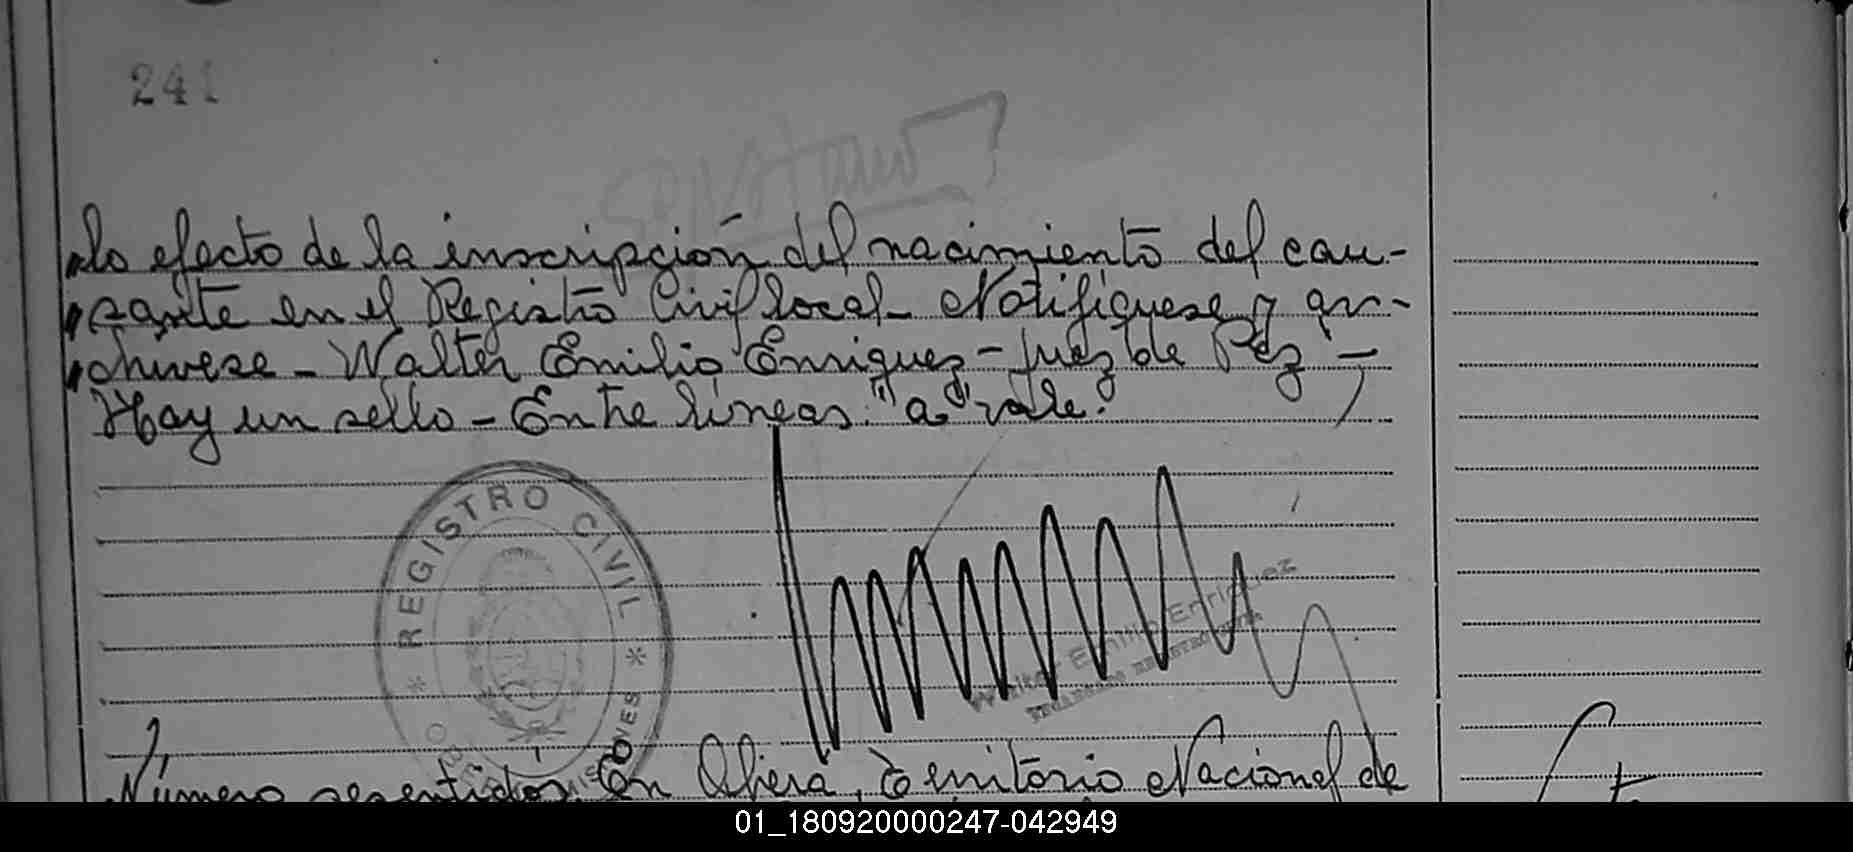 241
lo efecto de la inscripción del nacimiento del cau-
sante en el Registro Civil local - Notifíquese y ar-
chívese - Walter Emilio Enriquez - Juez de Paz -
Hay un sello - Entre líneas: "a" vale.
REGISTRO CIVIL
Walter Emilio Enriquez
Número sesentidos. En Obera, Territorio Nacional de
01_180920000247-042949